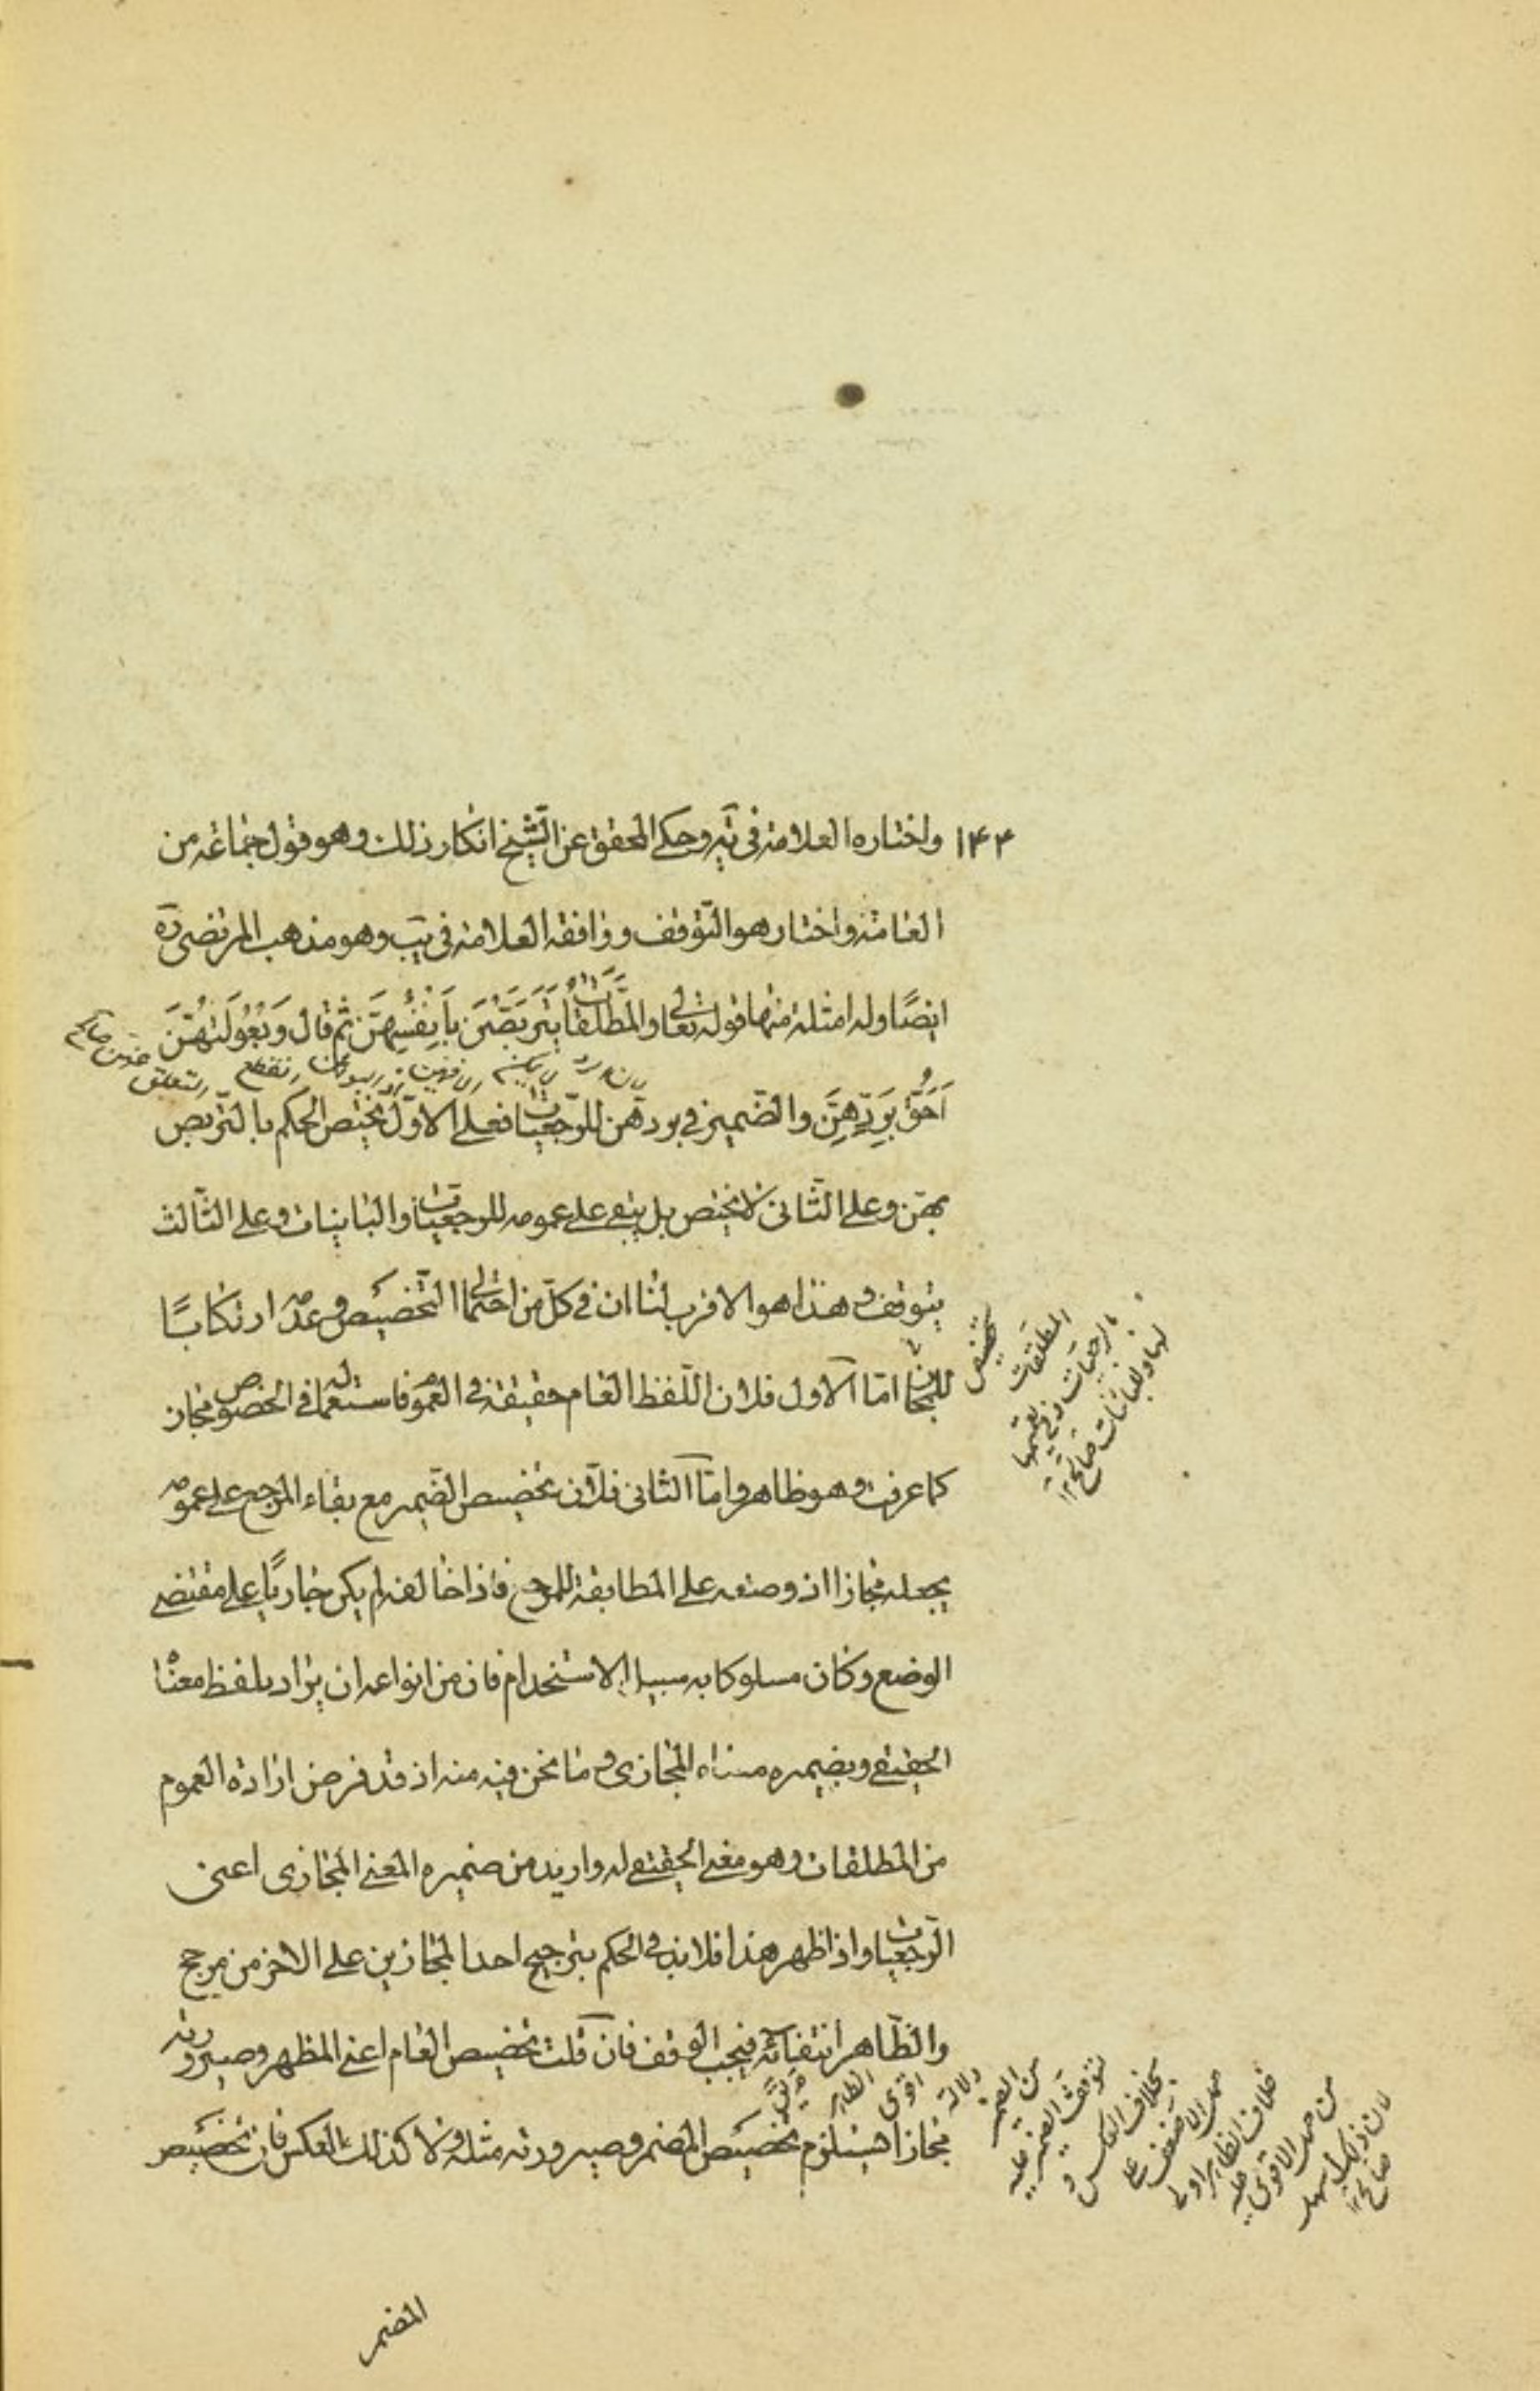 ١٤٣ واختاره العلامة في يه وحكى المحقق عن الشيخ انكار ذلك وهو قول جماعة من
العامة واختار هو التوقف ووافقه العلامة في يب وهو مذهب المرتضى ره
ايضًا وله امثلة منها قوله تعالى والمطلّقات يتربّصن بأنفسهنّ ثم قال وبعولتهنّ
احقّ بردّهنّ والضمير في بردهن للرجعيات فعلى الاول يختص الحكم بالتربص
بهن وعلى الثانى لا يختص بل يبقى على عمومه للرجعيات والباينات وعلى الثالث
يتوقف وهذا هو الاقرب لنا ان في كل من احتمالى التخصيص وعدمه ارتكابًا
للمجاز امّا الاول فلان اللفظ العام حقيقة في العموم فاستعماله في الخصوص مجاز
كما عرفت وهو ظاهر وامّا الثانى فلان تخصيص الضمير مع بقاء المرجع على عمومه
يجعله مجازا اذ وضعه على المطابقة للمرجع فاذا خالفه لم يكن جاريًا على مقتضى
الوضع وكان مسلوكا به سبيل الاستخدام فان من انواعه ان يراد بلفظ معناه
الحقيقى وبضميره معناه المجازى وما نحن فيه منه اذ قد فرض ارادة العموم
من المطلقات وهو معنى الحقيقى له واريد من ضميره المعنى المجازى اعنى
الرجعيات واذا ظهر هذا فلا بد في الحكم بترجيح احد المجازين على الاخر من مرجح
والظّاهر انتفائه فيجب الوقف فان قلت تخصيص العام اعنى المظهر وصيرورته
مجازا يستلزم تخصيص المضمر وصيرورته مثله ولا كذلك العكس فان تخصيص
المضمر
تخصيص
المطلقات
بالرجعيات وفي تعميمها
لها وللباينات صالح ١٢
دلالة اقوى
من الضمير
لتوقف الضمير عليه
بخلاف العكس و
حمل الاضعف على
خلاف الظاهر اولى
من حمل الاقوى عليه
لان ذلك سهل
صالح ١٢